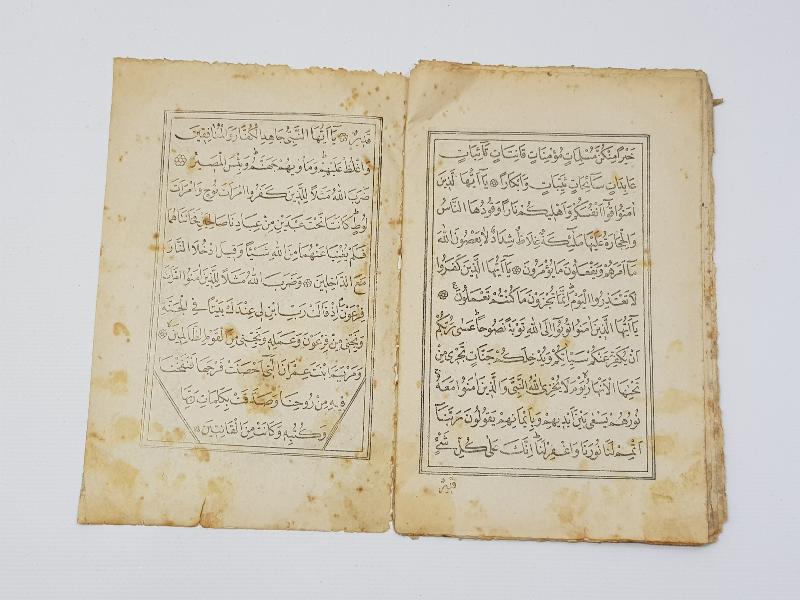 خَيْرًا مِنْكُنَّ مُسْلِمَاتٍ مُؤْمِنَاتٍ قَانِتَاتٍ تَائِبَاتٍ
عَابِدَاتٍ سَائِحَاتٍ ثَيِّبَاتٍ وَاَبْكَارًا ۞ يَاۤ اَيُّهَا الَّذِينَ
اٰمَنُوا قُوۤا اَنْفُسَكُمْ وَاَهْلِيكُمْ نَارًا وَقُودُهَا النَّاسُ
وَالْحِجَارَةُ عَلَيْهَا مَلٰۤئِكَةٌ غِلَاظٌ شِدَادٌ لَا يَعْصُونَ اللهَ
مَاۤ اَمَرَهُمْ وَيَفْعَلُونَ مَا يُؤْمَرُونَ ۞ يَاۤ اَيُّهَا الَّذِينَ كَفَرُوا
لَا تَعْتَذِرُوا الْيَوْمَ اِنَّمَا تُجْزَوْنَ مَا كُنْتُمْ تَعْمَلُونَ ۞
يَاۤ اَيُّهَا الَّذِينَ اٰمَنُوا تُوبُوۤا اِلَى اللهِ تَوْبَةً نَصُوحًا عَسٰى رَبُّكُمْ
اَنْ يُكَفِّرَ عَنْكُمْ سَيِّاٰتِكُمْ وَيُدْخِلَكُمْ جَنَّاتٍ تَجْرِى مِنْ
تَحْتِهَا الْاَنْهَارُ يَوْمَ لَا يُخْزِى اللهُ النَّبِىَّ وَالَّذِينَ اٰمَنُوا مَعَهُ
نُورُهُمْ يَسْعٰى بَيْنَ اَيْدِيهِمْ وَبِاَيْمَانِهِمْ يَقُولُونَ رَبَّنَاۤ
اَتْمِمْ لَنَا نُورَنَا وَاغْفِرْ لَنَا اِنَّكَ عَلٰى كُلِّ شَىْءٍ
قَدِيرٌ
قَدِيرٌ ۞ يَاۤ اَيُّهَا النَّبِىُّ جَاهِدِ الْكُفَّارَ وَالْمُنَافِقِينَ
وَاغْلُظْ عَلَيْهِمْ وَمَاْوٰيهُمْ جَهَنَّمُ وَبِئْسَ الْمَصِيرُ ۞
ضَرَبَ اللهُ مَثَلًا لِلَّذِينَ كَفَرُوا امْرَاَتَ نُوحٍ وَامْرَاَتَ
لُوطٍ كَانَتَا تَحْتَ عَبْدَيْنِ مِنْ عِبَادِنَا صَالِحَيْنِ فَخَانَتَاهُمَا
فَلَمْ يُغْنِيَا عَنْهُمَا مِنَ اللهِ شَيْئًا وَقِيلَ ادْخُلَا النَّارَ
مَعَ الدَّاخِلِينَ ۞ وَضَرَبَ اللهُ مَثَلًا لِلَّذِينَ اٰمَنُوا امْرَاَتَ
فِرْعَوْنَ اِذْ قَالَتْ رَبِّ ابْنِ لِى عِنْدَكَ بَيْتًا فِى الْجَنَّةِ
وَنَجِّنِى مِنْ فِرْعَوْنَ وَعَمَلِهِ وَنَجِّنِى مِنَ الْقَوْمِ الظَّالِمِينَ ۞
وَمَرْيَمَ ابْنَتَ عِمْرَانَ الَّتِىۤ اَحْصَنَتْ فَرْجَهَا فَنَفَخْنَا
فِيهِ مِنْ رُوحِنَا وَصَدَّقَتْ بِكَلِمَاتِ رَبِّهَا
وَكُتُبِهِ وَكَانَتْ مِنَ الْقَانِتِينَ ۞